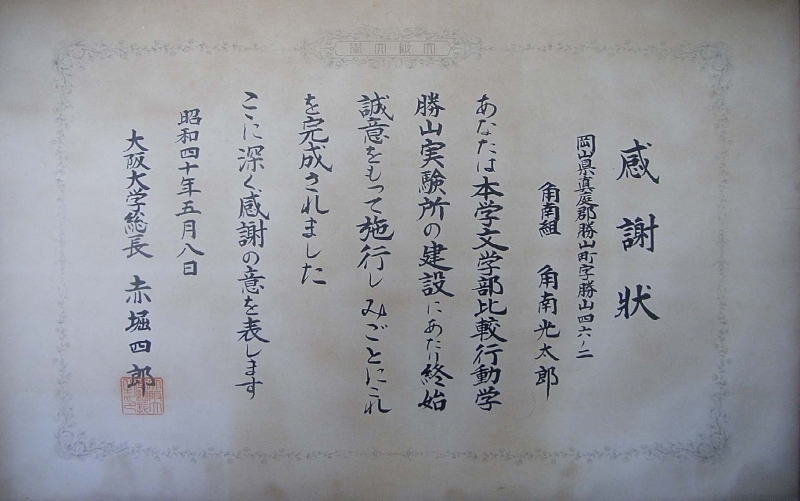 大阪大學
感謝状
岡山県真庭郡勝山町字勝山四六ノ二
角南組 角南光太郎
あなたは本学文学部比較行動学
勝山実験所の建設にあたり終始
誠意をもって施行しみごとにこれ
を完成されました
ここに深く感謝の意を表します
昭和四十年五月八日
大阪大学総長 赤堀四郎